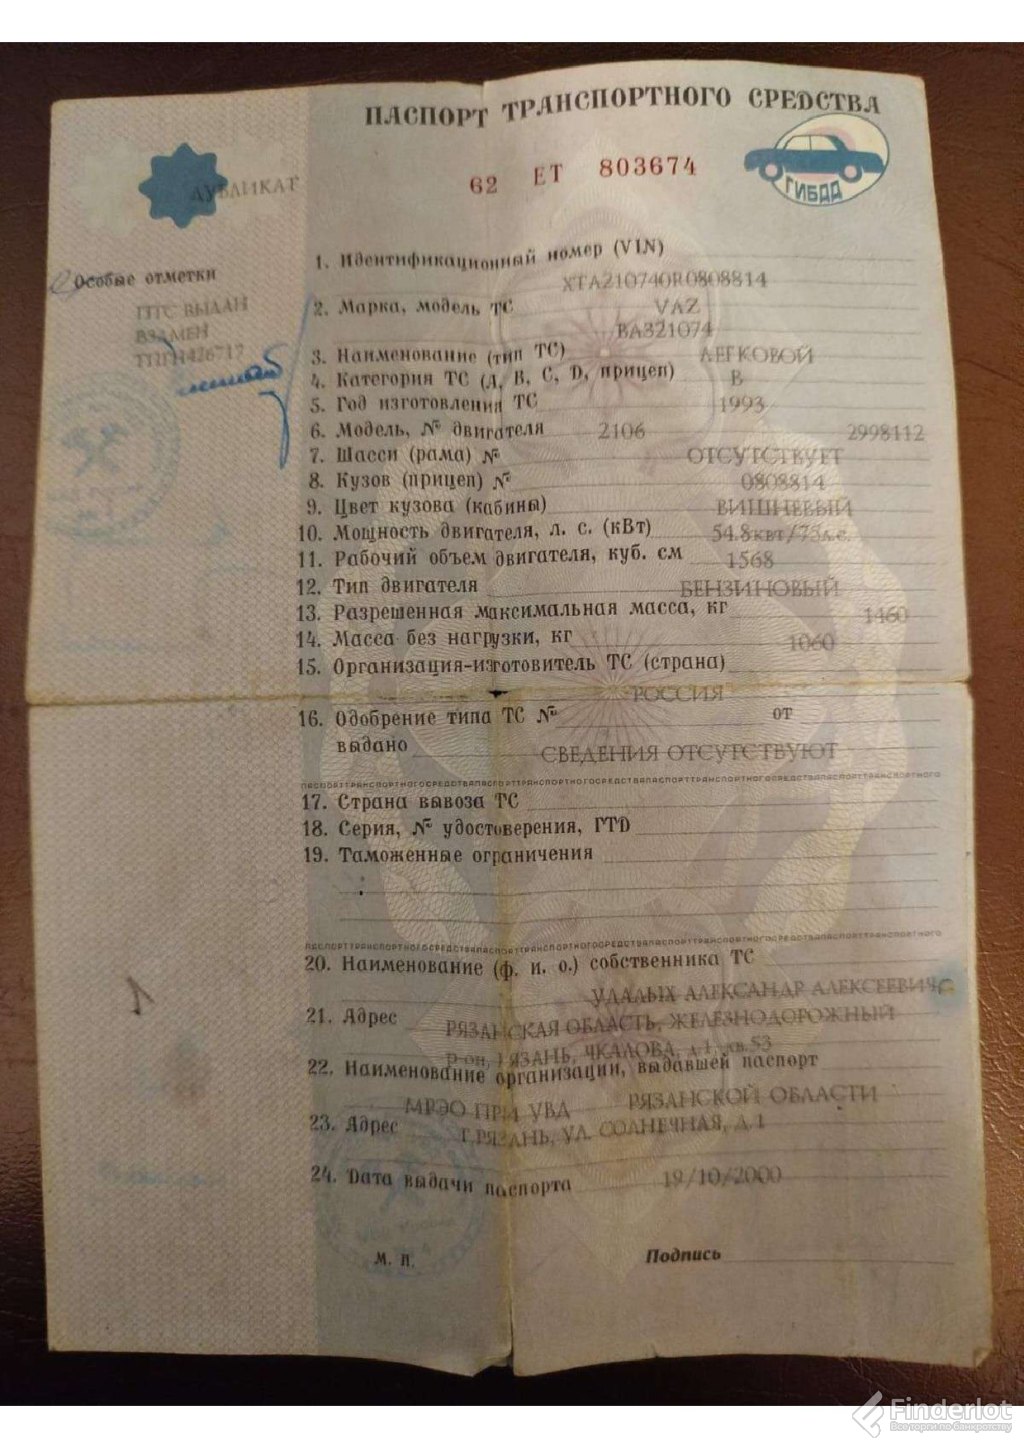 ПАСПОРТ ТРАНСПОРТНОГО СРЕДСТВА
62 ЕТ 803674
ГИБДД
ДУБЛИКАТ
Особые отметки
ПТС ВЫДАН
ВЗАМЕН
1. Идентификационный номер (VIN)
XTA210740R0808814
2. Марка, модель ТС VAZ
ВАЗ21074
3. Наименование (тип ТС) ЛЕГКОВОЙ
4. Категория ТС (А, В, С, D, прицеп) B
5. Год изготовления ТС 1993
6. Модель, № двигателя 2106 2998112
7. Шасси (рама) № ОТСУТСТВУЕТ
8. Кузов (прицеп) № 0808814
9. Цвет кузова (кабины) ВИШНЕВЫЙ
10. Мощность двигателя, л. с. (кВт) 54.8квт/75л.с.
11. Рабочий объем двигателя, куб. см 1568
12. Тип двигателя БЕНЗИНОВЫЙ
13. Разрешенная максимальная масса, кг 1460
14. Масса без нагрузки, кг 1060
15. Организация-изготовитель ТС (страна)
РОССИЯ
16. Одобрение типа ТС № от
выдано СВЕДЕНИЯ ОТСУТСТВУЮТ
17. Страна вывоза ТС
18. Серия, № удостоверения, ГТD
19. Таможенные ограничения
20. Наименование (ф. и. о.) собственника ТС
УДАЛЫХ АЛЕКСАНДР АЛЕКСЕЕВИЧ
21. Адрес РЯЗАНСКАЯ ОБЛАСТЬ, ЖЕЛЕЗНОДОРОЖНЫЙ
р-он, РЯЗАНЬ, ЧКАЛОВА, д.1, кв.53
22. Наименование организации, выдавшей паспорт
МРЭО ПРИ УВД РЯЗАНСКОЙ ОБЛАСТИ
23. Адрес Г.РЯЗАНЬ, УЛ. СОЛНЕЧНАЯ, Д.1
24. Дата выдачи паспорта 19/10/2000
М. П. Подпись
Finderlot
Все торги по банкротству